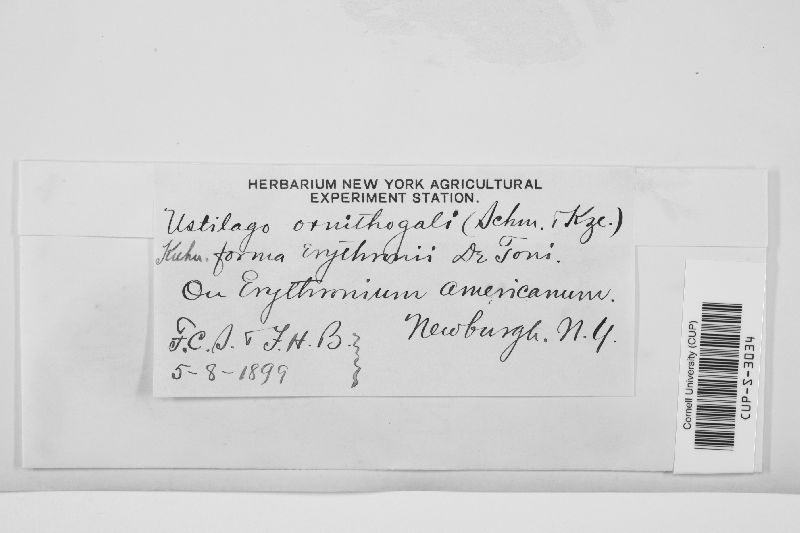 HERBARIUM NEW YORK AGRICULTURAL
EXPERIMENT STATION.
Ustilago ornithogali (Schm. & Kze.)
Kuhn. forma Erythronii De Toni.
On Erythronium americanum.
Newburgh. N.Y.
F.C.S. & F.H.B.
5-8-1899
Cornell University (CUP)
CUP-S-3034